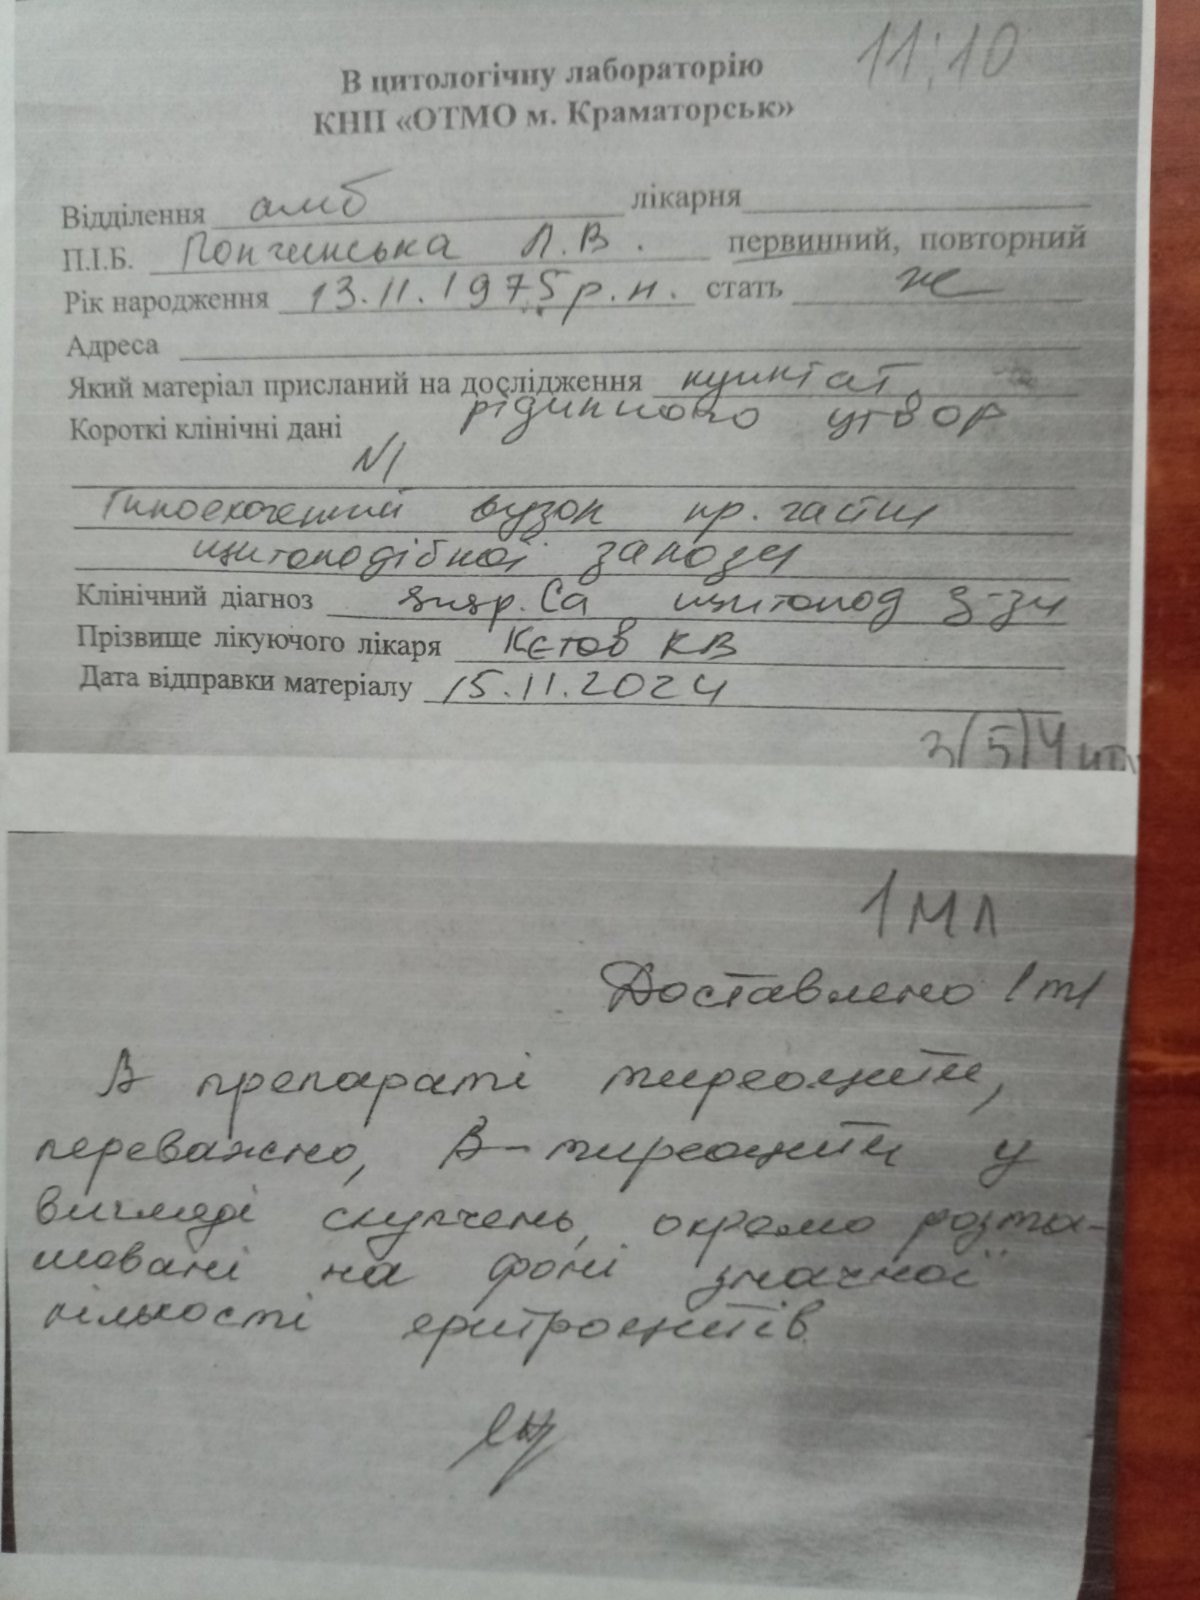 11:10
В цитологічну лабораторію
КНП «ОТМО м. Краматорськ»
Відділення амб лікарня
П.І.Б. Л.В. первинний, повторний
Рік народження 13.11.1975 р.н. стать ж
Адреса
Який матеріал присланий на дослідження пунктат
Короткі клінічні дані рідинного утвор
N1
Гипоехогенний вузол пр. частки
щитоподібної залози
Клінічний діагноз susp. Ca щитопод з-зи
Прізвище лікуючого лікаря Кєтов КВ
Дата відправки матеріалу 15.11.2024
3(5)4
1 мл
Доставлено 1 ml
В препараті тиреоцити,
переважно, В-тиреоцити у
вигляді скупчень, окремо розта-
шовані на фоні значної
кількості еритроцитів